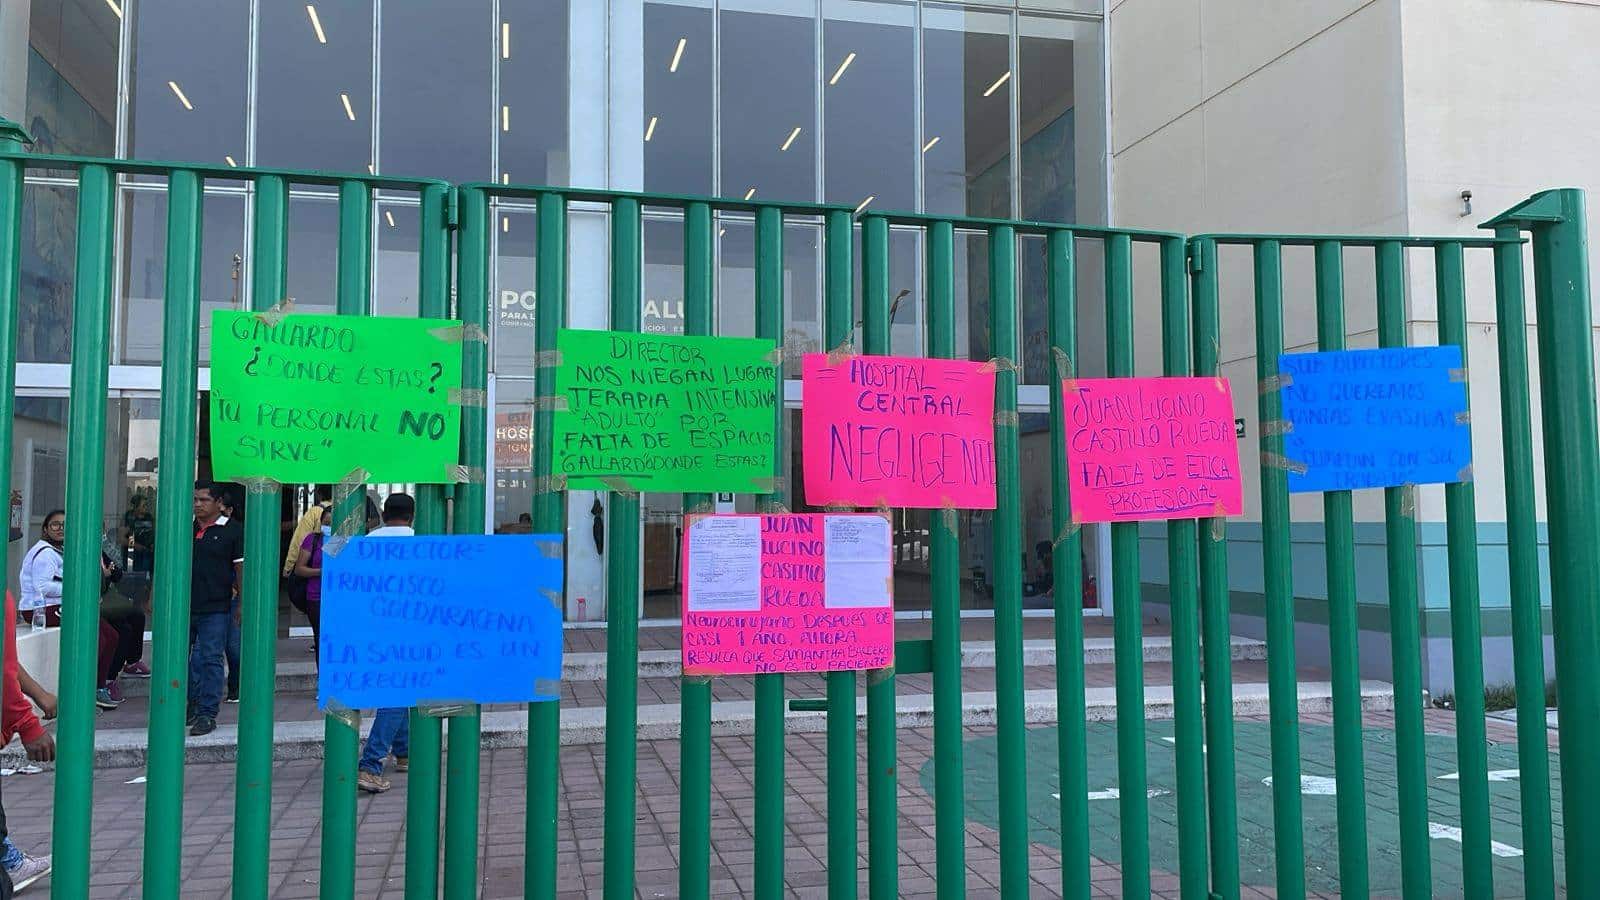 PO
PARA L
ALU
HOSP
GALLARDO
¿DONDE ESTAS?
"TU PERSONAL NO
SIRVE"
DIRECTOR
NOS NIEGAN LUGAR
TERAPIA INTENSIVA
"ADULTO" POR
FALTA DE ESPACIO
"GALLARDO" DONDE ESTAS?
= HOSPITAL =
CENTRAL
NEGLIGENTE
JUAN LUCINO
CASTILLO RUEDA
FALTA DE ETICA
PROFESIONAL
SUB DIRECTORES
NO QUEREMOS
TANTAS EVASIVAS
CUMPLAN CON SU
TRABAJO
DIRECTOR=
FRANCISCO
GOLDARACENA
"LA SALUD ES UN
DERECHO"
JUAN
LUCINO
CASTILLO
RUEDA
NEUROCIRUJANO DESPUES DE
CASI 1 AÑO, AHORA
RESULLA QUE SAMANTHA BALDERA
NO ES TU PACIENTE